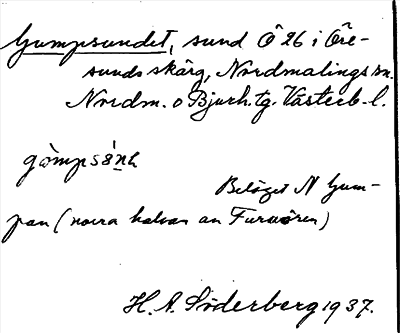 Gumpsundet, sund Ö 26 i Öre-
sunds skärg, Nordmalings sn.
Nordm. o Bjurh. tg. Västerb. l.
gòmpsá̀nh
Beläget N Gum-
pan (norra halvan av Furuören)
H. A. Söderberg 1937.